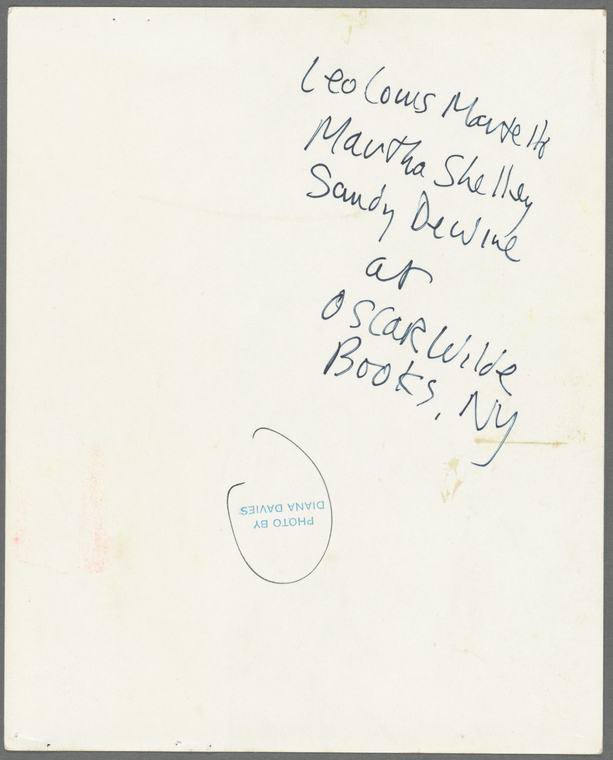 Leo Louis Martello
Martha Shelley
Sandy DeWine
at
OSCAR Wilde
Books, NY
PHOTO BY
DIANA DAVIES